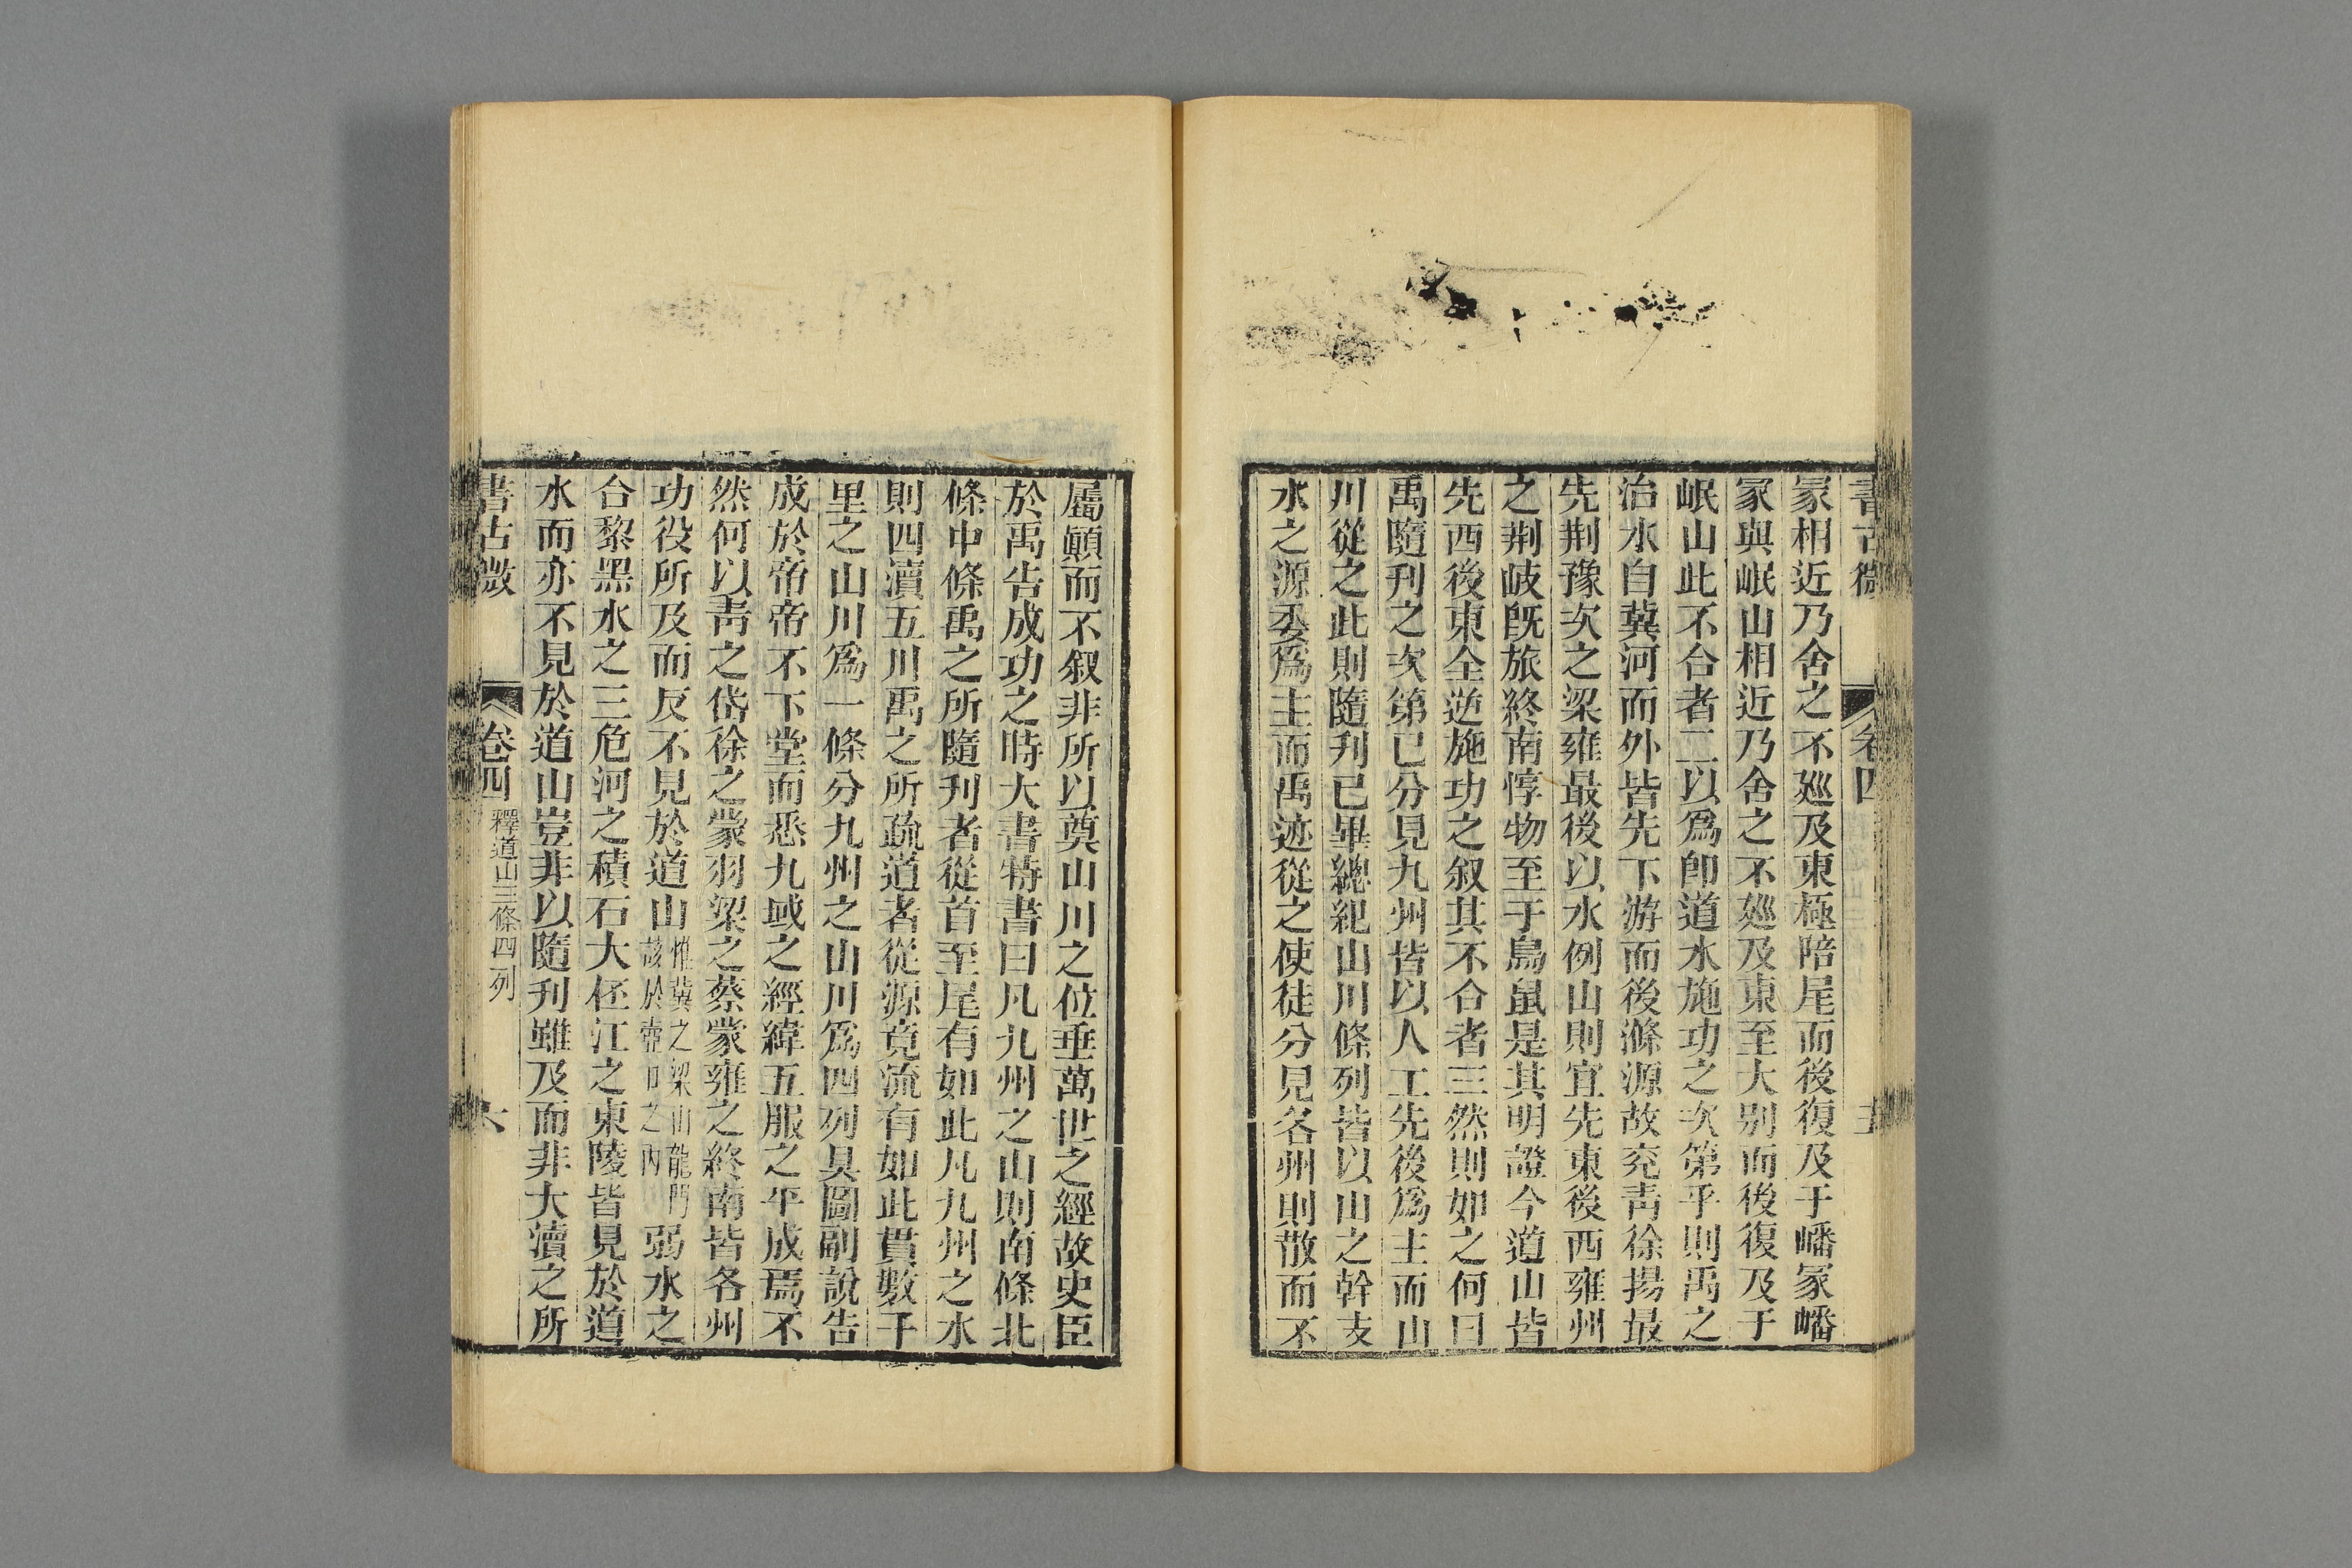 書古微 卷四 五
冡相近乃舍之不廵及東極陪尾而後復及于嶓冡嶓
冡與岷山相近乃舍之不廵及東至大别而後復及于
岷山此不合者二以爲卽道水施功之次第乎則禹之
治水自冀河而外皆先下游而後滌源故兖靑徐揚最
先荆豫次之梁雍最後以水例山則宜先東後西雍州
之荆岐旣旅終南惇物至于鳥鼠是其明證今道山皆
先西後東全逆施功之叙其不合者三然則如之何曰
禹隨刋之次第已分見九州皆以人工先後爲主而山
川從之此則隨刋已畢緫紀山川條列皆以山之幹支
水之源委爲主而禹迹從之使徒分見各州則散而不
屬顚而不叙非所以奠山川之位垂萬世之經故史臣
於禹告成功之時大書特書曰凡九州之山則南條北
條中條禹之所隨刋者從首至尾有如此凡九州之水
則四瀆五川禹之所疏道者從源竟流有如此貫數千
里之山川爲一條分九州之山川爲四列具圖副說告
成於帝帝不下堂而悉九域之經緯五服之平成焉不
然何以靑之岱徐之蒙羽梁之蔡蒙雍之終南皆各州
功役所及而反不見於道山惟冀之梁山龍門該於壺口之內弱水之
合黎黑水之三危河之積石大伾江之東陵皆見於道
水而亦不見於道山豈非以隨刋雖及而非大瀆之所
書古微 卷四 釋道山三條四列 六